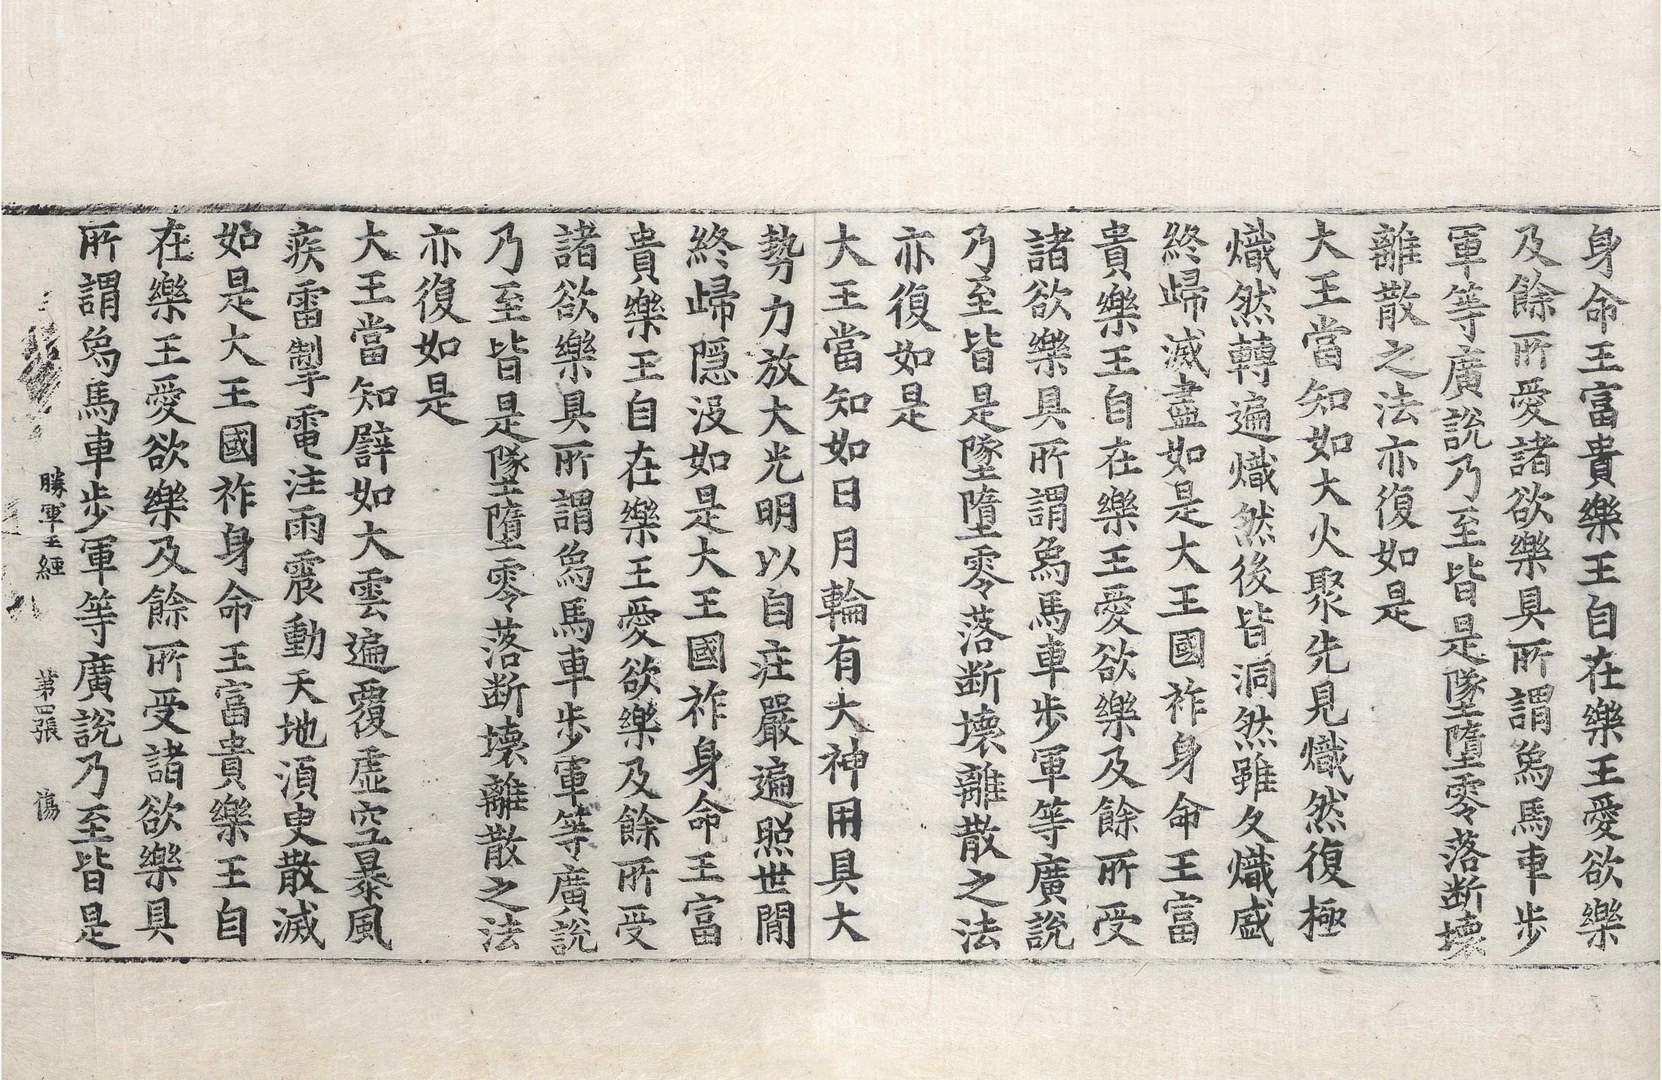 身命王富貴樂王自在樂王愛欲樂
及餘所愛諸欲樂具所謂爲馬車步
軍等廣說乃至皆是墜墮零落斷壞
離散之法亦復如是
大王當知如大火聚先見熾然復極
熾然轉遍熾然後皆洞然雖久熾盛
終歸滅盡如是大王國祚身命王富
貴樂王自在樂王愛欲樂及餘所受
諸欲樂具所謂爲馬車步軍等廣說
乃至皆是墜墮零落断壞離散之法
亦復如是
大王當知如日月輪有大神用具大
勢力放大光明以自庄嚴遍照世間
終歸隱沒如是大王國祚身命王富
貴樂王自在樂王愛欲樂及餘所受
諸欲樂具所謂爲馬車步軍等廣說
乃至皆是墜墮零落断壞離散之法
亦復如是
大王當知譬如大雲遍覆虛空暴風
疾雷掣電注雨震動天地須臾散滅
如是大王國祚身命王富貴樂王自
在樂王愛欲樂及餘所受諸欲樂具
所謂爲馬車步軍等廣說乃至皆是
勝軍王經 第四張 傷